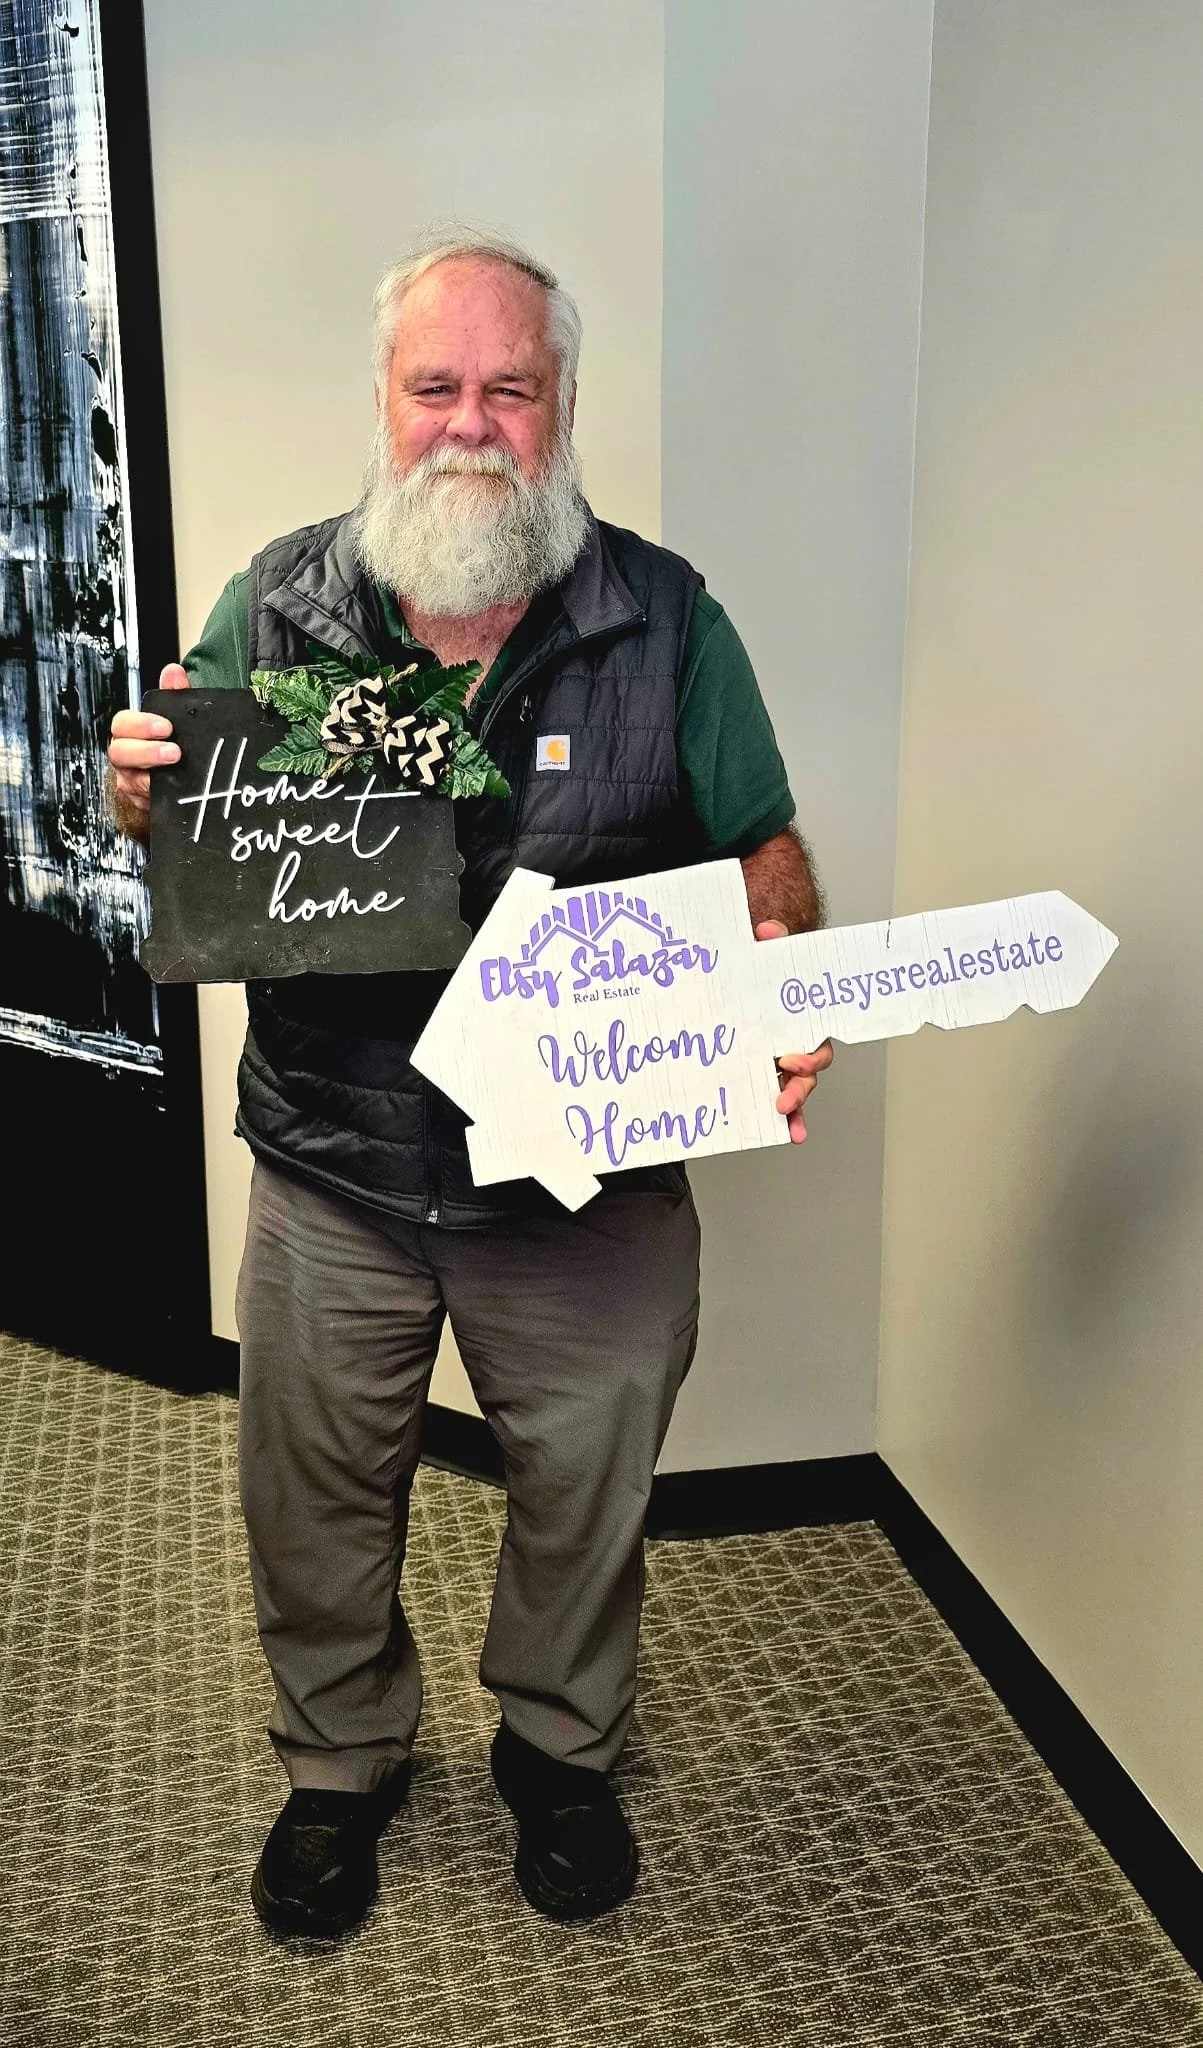 Home
sweet
home
Elsy Salazar
Real Estate
Welcome
Home!
@elsysrealestate